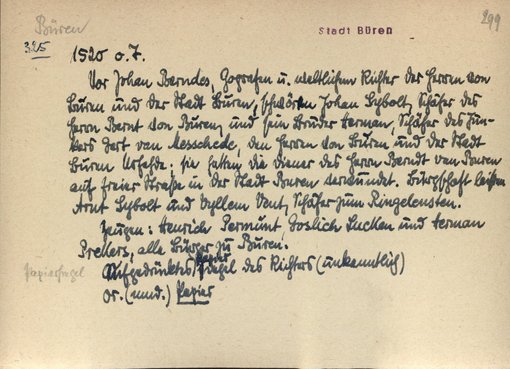 Büren
Stadt Büren
299
325
1520 o.T.
Vor Johan Berndes Gografen u. weltlichem Richter der Herren von
Büren und der Stadt Büren, schwören Johan Sybolt, Schäfer des
Herrn Bernt von Büren, und sein Bruder Herman, Schäfer des Jun-
kers Gert van Messchede, den Herren von Büren und der Stadt
Büren Urfehde: sie hatten die Diener des Herrn Berndt van Buren
auf freier Straße in der Stadt Buren verwundet. Bürgschaft leisten
Arnt Sybolt und Dyllem Vent, Schäfer zum Ringelensten.
Zeugen: Henrich Permunt, Goslich Lucken und Herman
Prekers, alle Bürger zu Büren.
Papiersiegel
Aufgedrücktes Papier Siegel des Richters (unkenntlich)
Or. (nund.) Papier